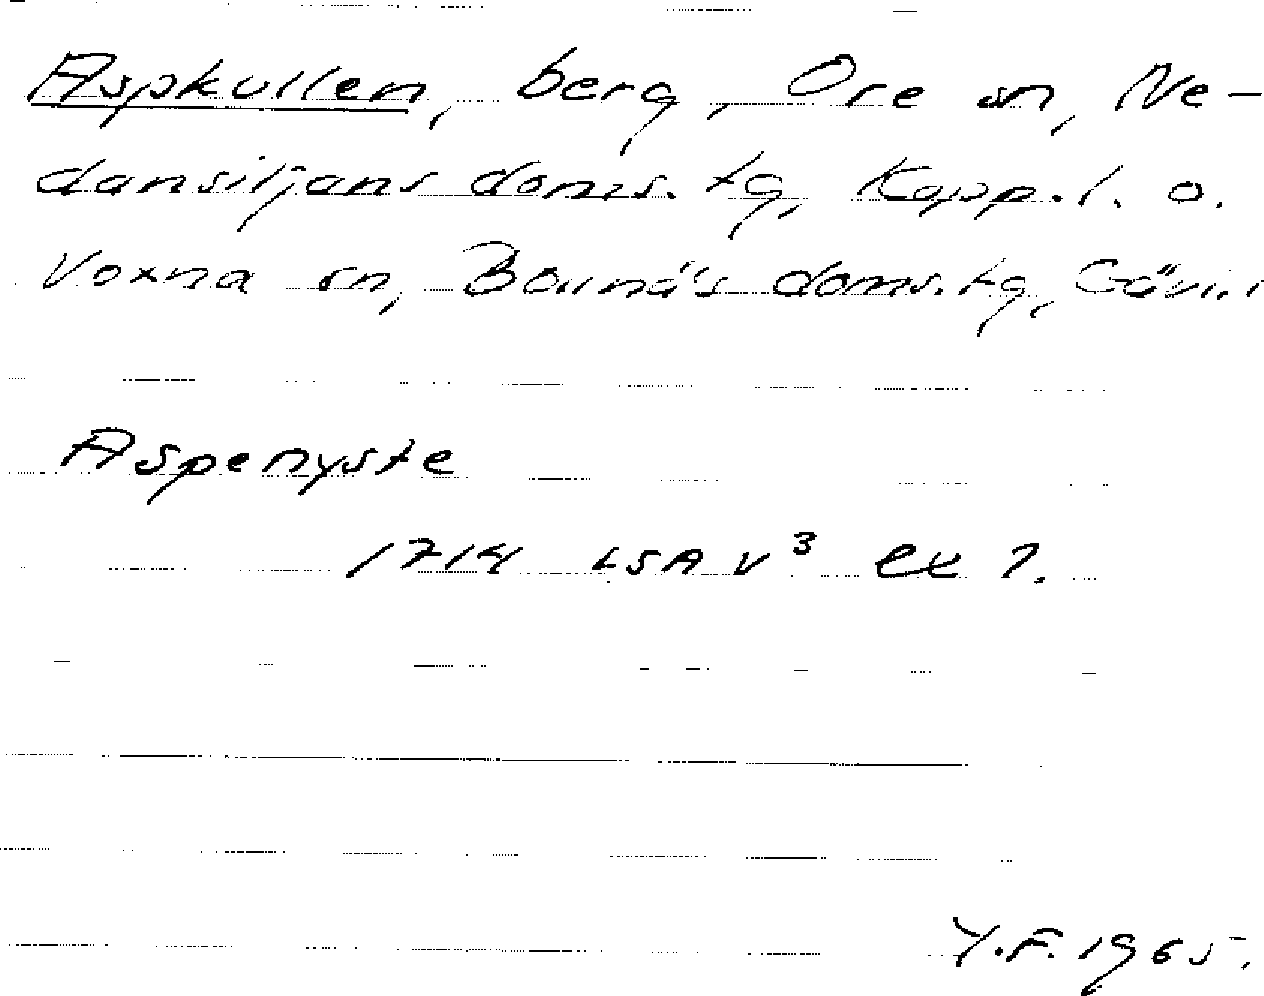 Aspkullen, berg, Ore sn, Ne-
dansiljans doms.tg, Kopp.l. o.
Voxna sn, Bollnäs doms.tg, Gävl.l
Aspenyste
1714 LSA V³ ex 7.
Y.F. 1965.